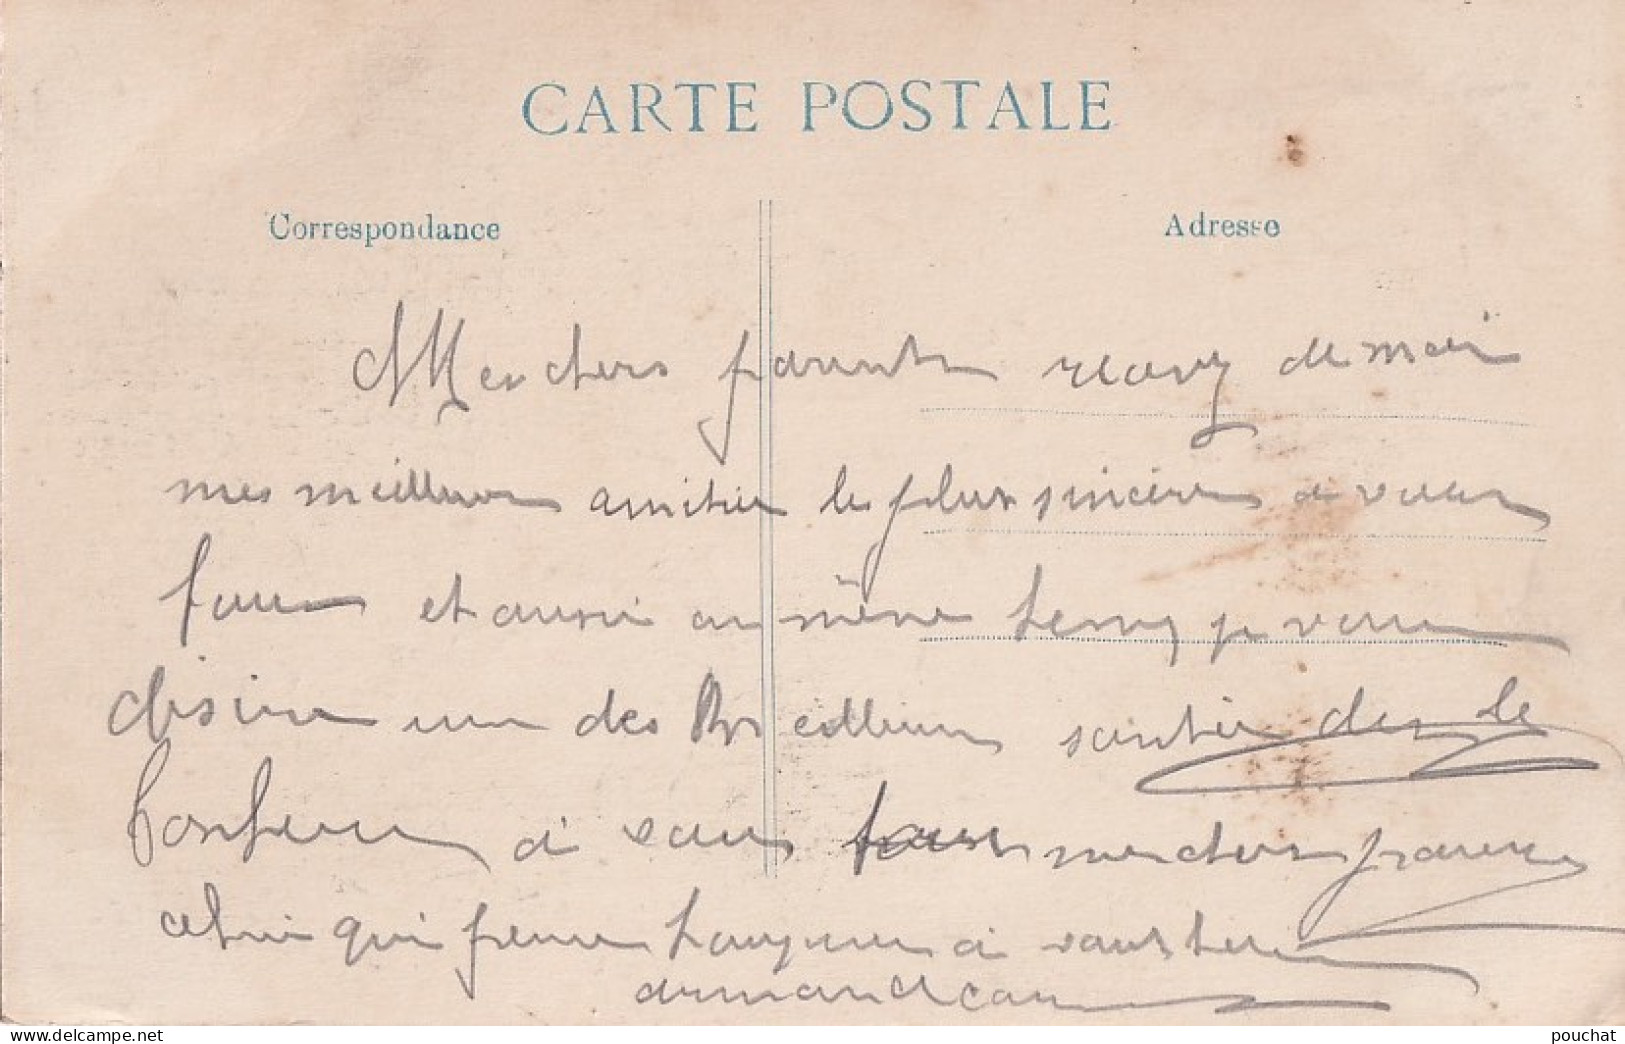 CARTE POSTALE
Correspondance
Adresse
Mes chers parents recevez de moi
mes meilleurs amitier les plus sincères a vous
tous et aussi au même temps je vous
désire un des meilleurs santer des le
bonheur a vous tous mes chers parens
celui qui pense toujours a vous
armand
www.delcampe.net
pouchat